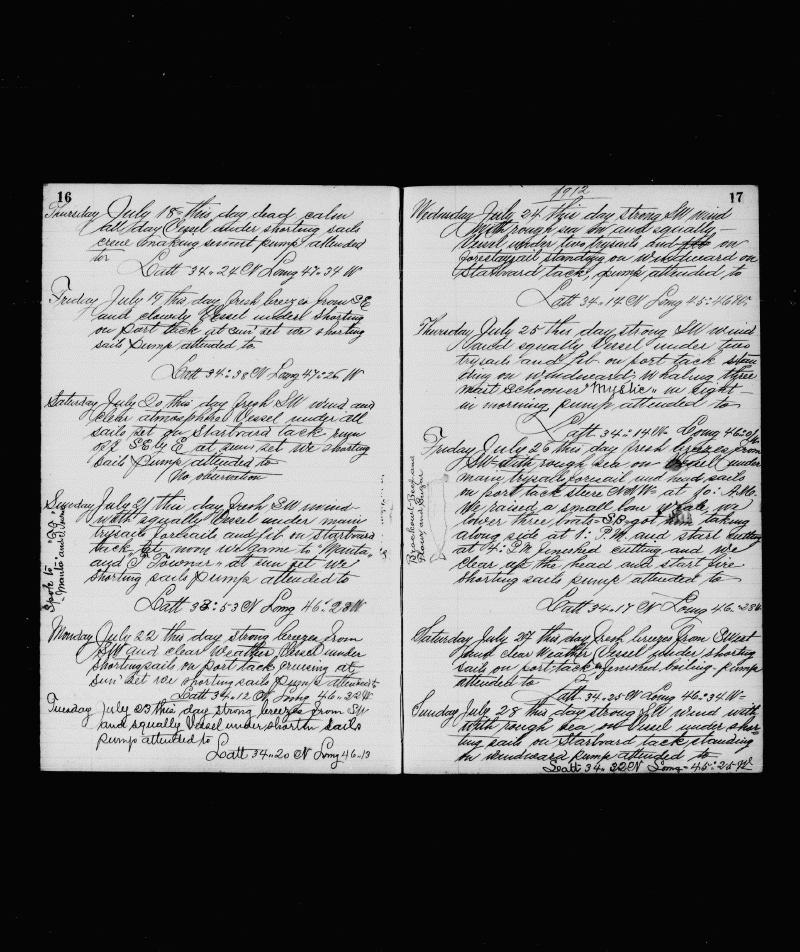 16
Thursday July 18 = this day dead calm
all day Vessel under shorting sails
crew making sennit pump attended
to
Latt 34.. 24 N Long 47.. 34 W
Friday July 19 this day fresh breezes from SE
and cloudy Vessel under shorting
on port tack at sun set we shorting
sails pump attended to
Latt 34.. 38 N Long 47.. 26 W
Saturday July 20 this day fresh SW wind and
clear atmosphere Vessel under all
sails set on Starboard tack run
off SE by E at sun set we shorting
sails Pump attended to
No observation
Sunday July 21 this day fresh SW wind
with squally Vessel under main
trysails foresails and jib on starboard
tack at none we came to "Manta"
and at sun set we
shorting sails pump attended to
Spoke to
"Manta" and
Latt 33.. 53 N Long 46.. 28 W
Monday July 22 this day strong breezes from
SW and clear Weather Vessel under
shorting sails on port tack cruising at
sun set we shorting sails Pump attended to
Latt 34.. 12 N Long 46.. 32 W
Tuesday July 23 this day strong breezes from SW
and squally Vessel under shorten sails
pump attended to
Latt 34.. 20 N Long 46.. 13
1912
17
Wednesday July 24 this day strong SW wind
with rough sea on and squally
Vessel under two trysails and on
forestaysail standing on windward on
Starboard tack, pump attended to
Latt 34.. 14 N Long 45.. 46 W
Thursday July 25 this day strong SW wind
and squally Vessel under two
trysails and jib on port tack stan
ding on windward; Whaling three
mast Schooner "Mystic" in sight
in morning pump attended to
Latt 34.. 14 N Long 46..
Friday July 26 this day fresh breezes from
SW with rough sea on Vessel under
main trysail foresail and head sails
on port tack steere NNW at 10: A.M.
We raised a small bone of we
lower three boats = S.B. got taking
along side at 1: P.M. and start cutting
at 4: P.M finished cutting and we
clear up the head and start fire
shorting sails pump attended to
Brockout Beef and
Flour and Sugar
Latt 34.. 17 N Long 46.. 28 W
Saturday July 27 this day fresh breezes from SWest
and clear Weather Vessel under shorting
sails on port tack finished boiling pump
attended to
Latt 34.. 25 N Long 46.. 34 W
Sunday July 28 this day strong SW wind with
with rough sea on Vessel under shor
ting sails on Starboard tack standing
on windward pump attended to
Latt 34.. 22 N Long 45.. 25 W